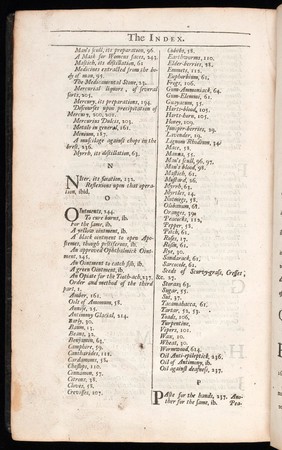 The INDEX.
Man's scull, its preparation, 96.
A Mask for Womens faces, 243.
Mastich, its distillation, 61
Medicines extracted from the bo-
dy of man, 95.
The Medicamental Stone, 23.
Mercurial liquors, of several
sorts, 205.
Mercury, its preparations, 194.
Discourses upon precipitation of
Mercury, 200, 201.
Mercurius Dulcis, 203.
Metals in general, 161.
Minium, 187.
A mucilage against chops in the
brest, 236.
Myrrh, its distillation, 63.
N
Niter, its fixation, 132.
Reflections upon that opera-
tion, ibid.
O
Ointments, 244.
To cure burns, ib.
For the same, ib.
A yellow ointment, ib.
A black ointment to open Apo-
stemes, though pestiferous, ib.
An approved Ophthalmick Oint-
ment, 245.
An Ointment to catch fish, ib.
A green Ointment, ib.
An Opiate for the Tooth-ach, 237.
Order and method of the third
part, 1.
Amber, 161.
Oils of Ammoni, 58.
Annise, 25.
Antimony Glacial, 214.
Barly, 30.
Beans, 13.
Beans, 32.
Benjamin, 63.
Camphire, 59.
Cantharides, 112.
Cardamoms, 58.
Chesteps, 110.
Cinnamon, 57.
Citrons, 38.
Cloves, 58.
Crevisses, 107.
Cubebs, 58.
Earthworms, 110.
Elder-berries, 28.
Emmets, 112.
Euphorbium, 61.
Frogs, 106.
Gum-Ammoniack, 64.
Gum-Elemni, 61.
Guayacum, 35.
Harts-blood, 105.
Harts-horn, 105.
Honey, 109.
Juniper-berries, 29.
Lavender, 19.
Lignum Rhodium, 34.
Mace, 58.
Manna, 71.
Man's scull, 96, 97.
Man's blood, 98.
Mastich, 61.
Mustard, 26.
Myrrh, 63.
Myrtles, 14.
Nutmegs, 58.
Olibanum, 68.
Oranges, 39.
Peacocks, 112.
Pepper, 58.
Pitch, 61.
Roses, 17.
Rosin, 61.
Rye, 30.
Sandarack, 61.
Sarcocole, 61.
Seeds of Scurvygrass, Cresset,
&c. 27.
Storax, 63.
Sugar, 53.
Sut, 37.
Tacamahacca, 61.
Tartar, 52, 53.
Toads, 106.
Turpentine,
Vipers, 101.
Wax, 10.
Wheat, 30.
Wormwood, 614.
Oil Anti-epileptick, 236.
Oil of Antimony, ib.
Oil against deafness, 237.
P
Paste for the hands, 237. Ano-
ther for the same, ib.
Pea-